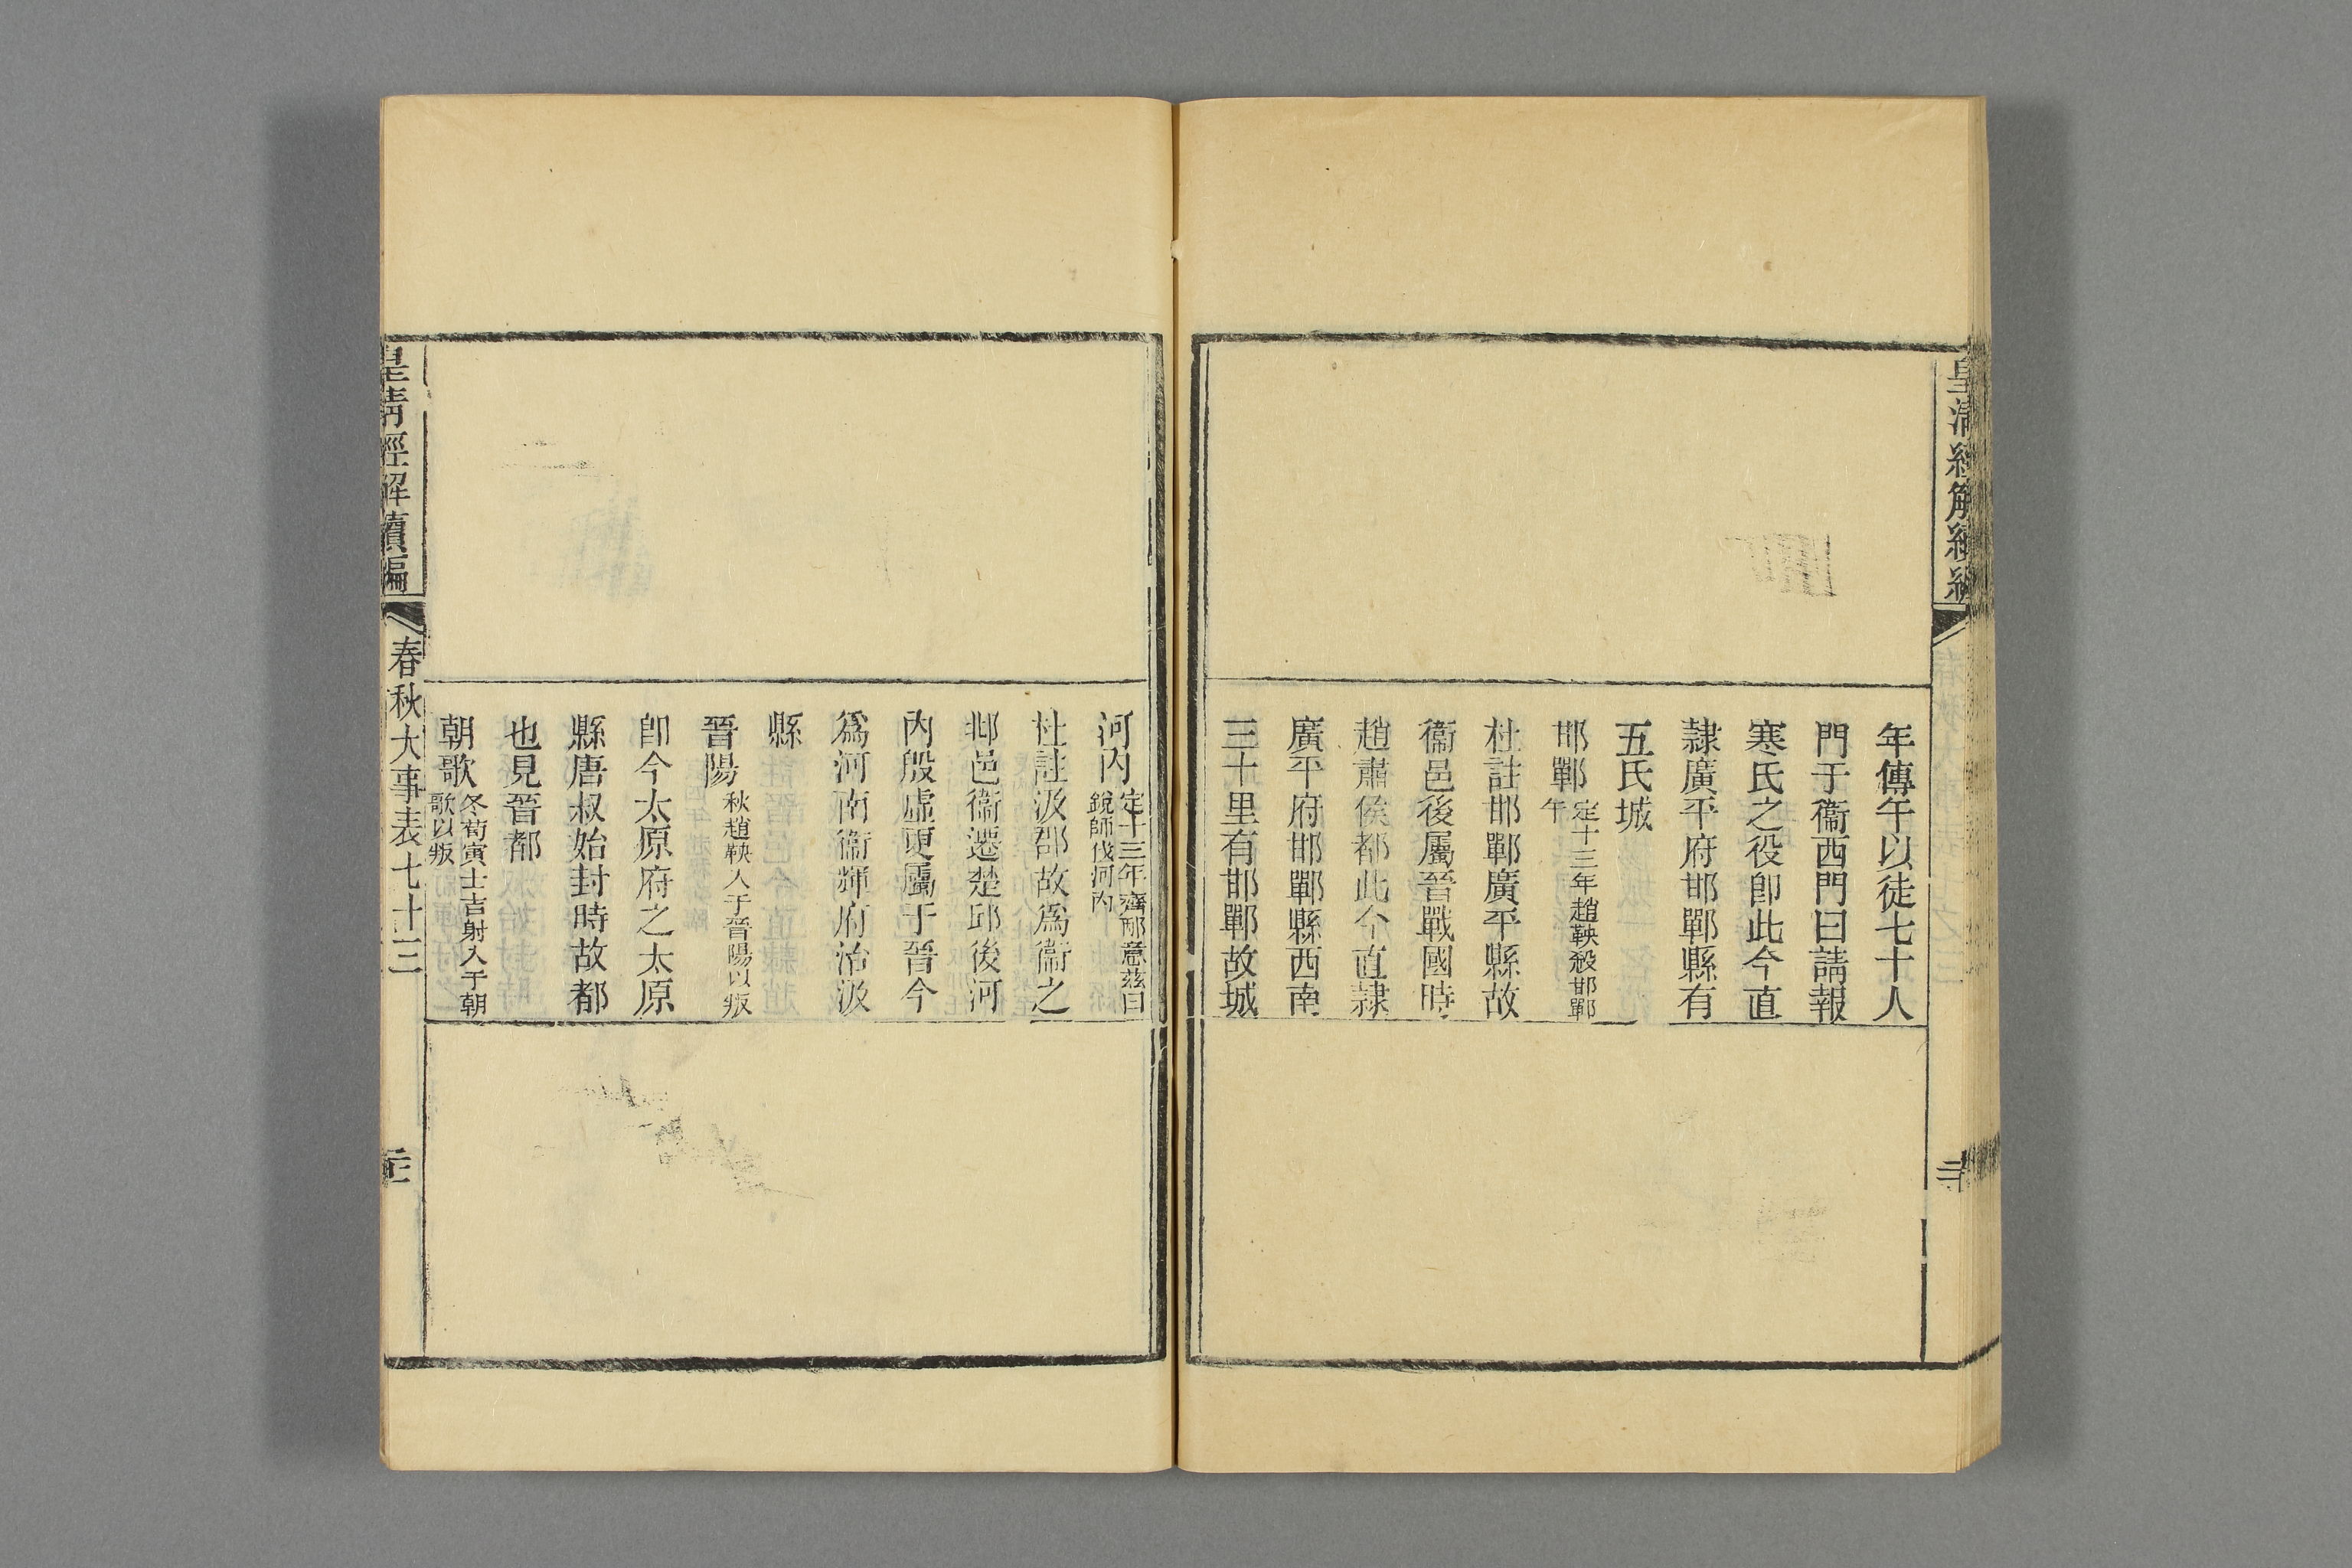 皇清經解續編
年傳午以徒七十人
門于衞西門曰請報
寒氏之役卽此今直
隸廣平府邯鄲縣有
五氏城
邯鄲定十三年趙鞅殺邯鄲
午
杜註邯鄲廣平縣故
衞邑後屬晉戰國時
趙肅侯都此今直隸
廣平府邯鄲縣西南
三十里有邯鄲故城
河內定十三年齊邴意茲曰
銳師伐河內
杜註汲郡故爲衞之
邶邑衞遷楚邱後河
內殷虛更屬于晉今
爲河南衞輝府治汲
縣
晉陽秋趙鞅入于晉陽以叛
卽今太原府之太原
縣唐叔始封時故都
也見晉都
朝歌冬荀寅士吉射入于朝
歌以叛
皇清經解續編
春秋大事表七十三